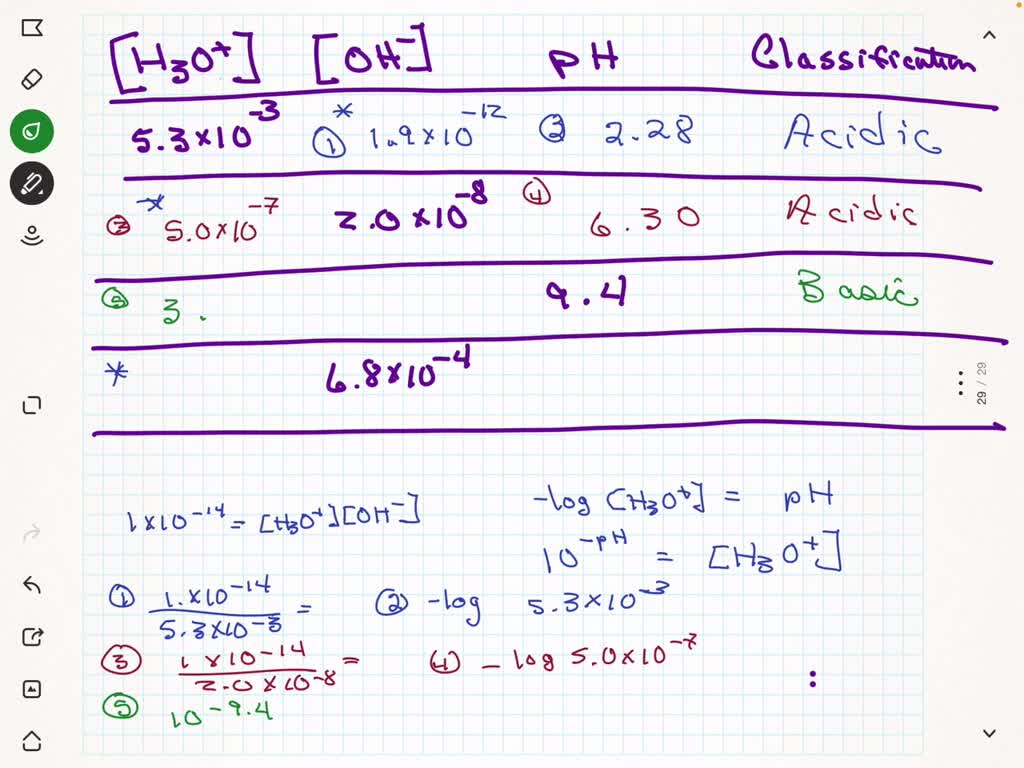 [H₃O⁺] [OH⁻] pH Classification
5.3×10⁻³ ① * 1.9×10⁻¹² ② 2.28 Acidic
* ③ 5.0×10⁻⁷ 2.0×10⁻⁸ ④ 6.30 Acidic
⑤ 3. 9.4 Basic
* 6.8×10⁻⁴
29 / 29
1×10⁻¹⁴ = [H₃O⁺][OH⁻]
-log [H₃O⁺] = pH
10^-pH = [H₃O⁺]
① 1.×10⁻¹⁴ / 5.3×10⁻³ = ② -log 5.3×10⁻³
③ 1×10⁻¹⁴ / 2.0×10⁻⁸ = ④ -log 5.0×10⁻⁷
⑤ 10^-9.4